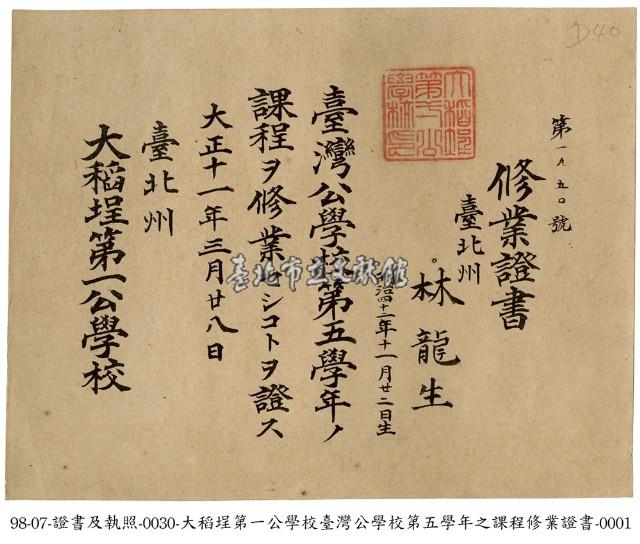 D40
第一九五〇號
修業證書
臺北州
林龍生
明治四十二年十一月廿二日生
臺灣公學校第五學年ノ
課程ヲ修業セシコトヲ證ス
大正十一年三月廿八日
臺北州
大稻埕第一公學校
臺北市立文獻館
98-07-證書及執照-0030-大稻埕第一公學校臺灣公學校第五學年之課程修業證書-0001